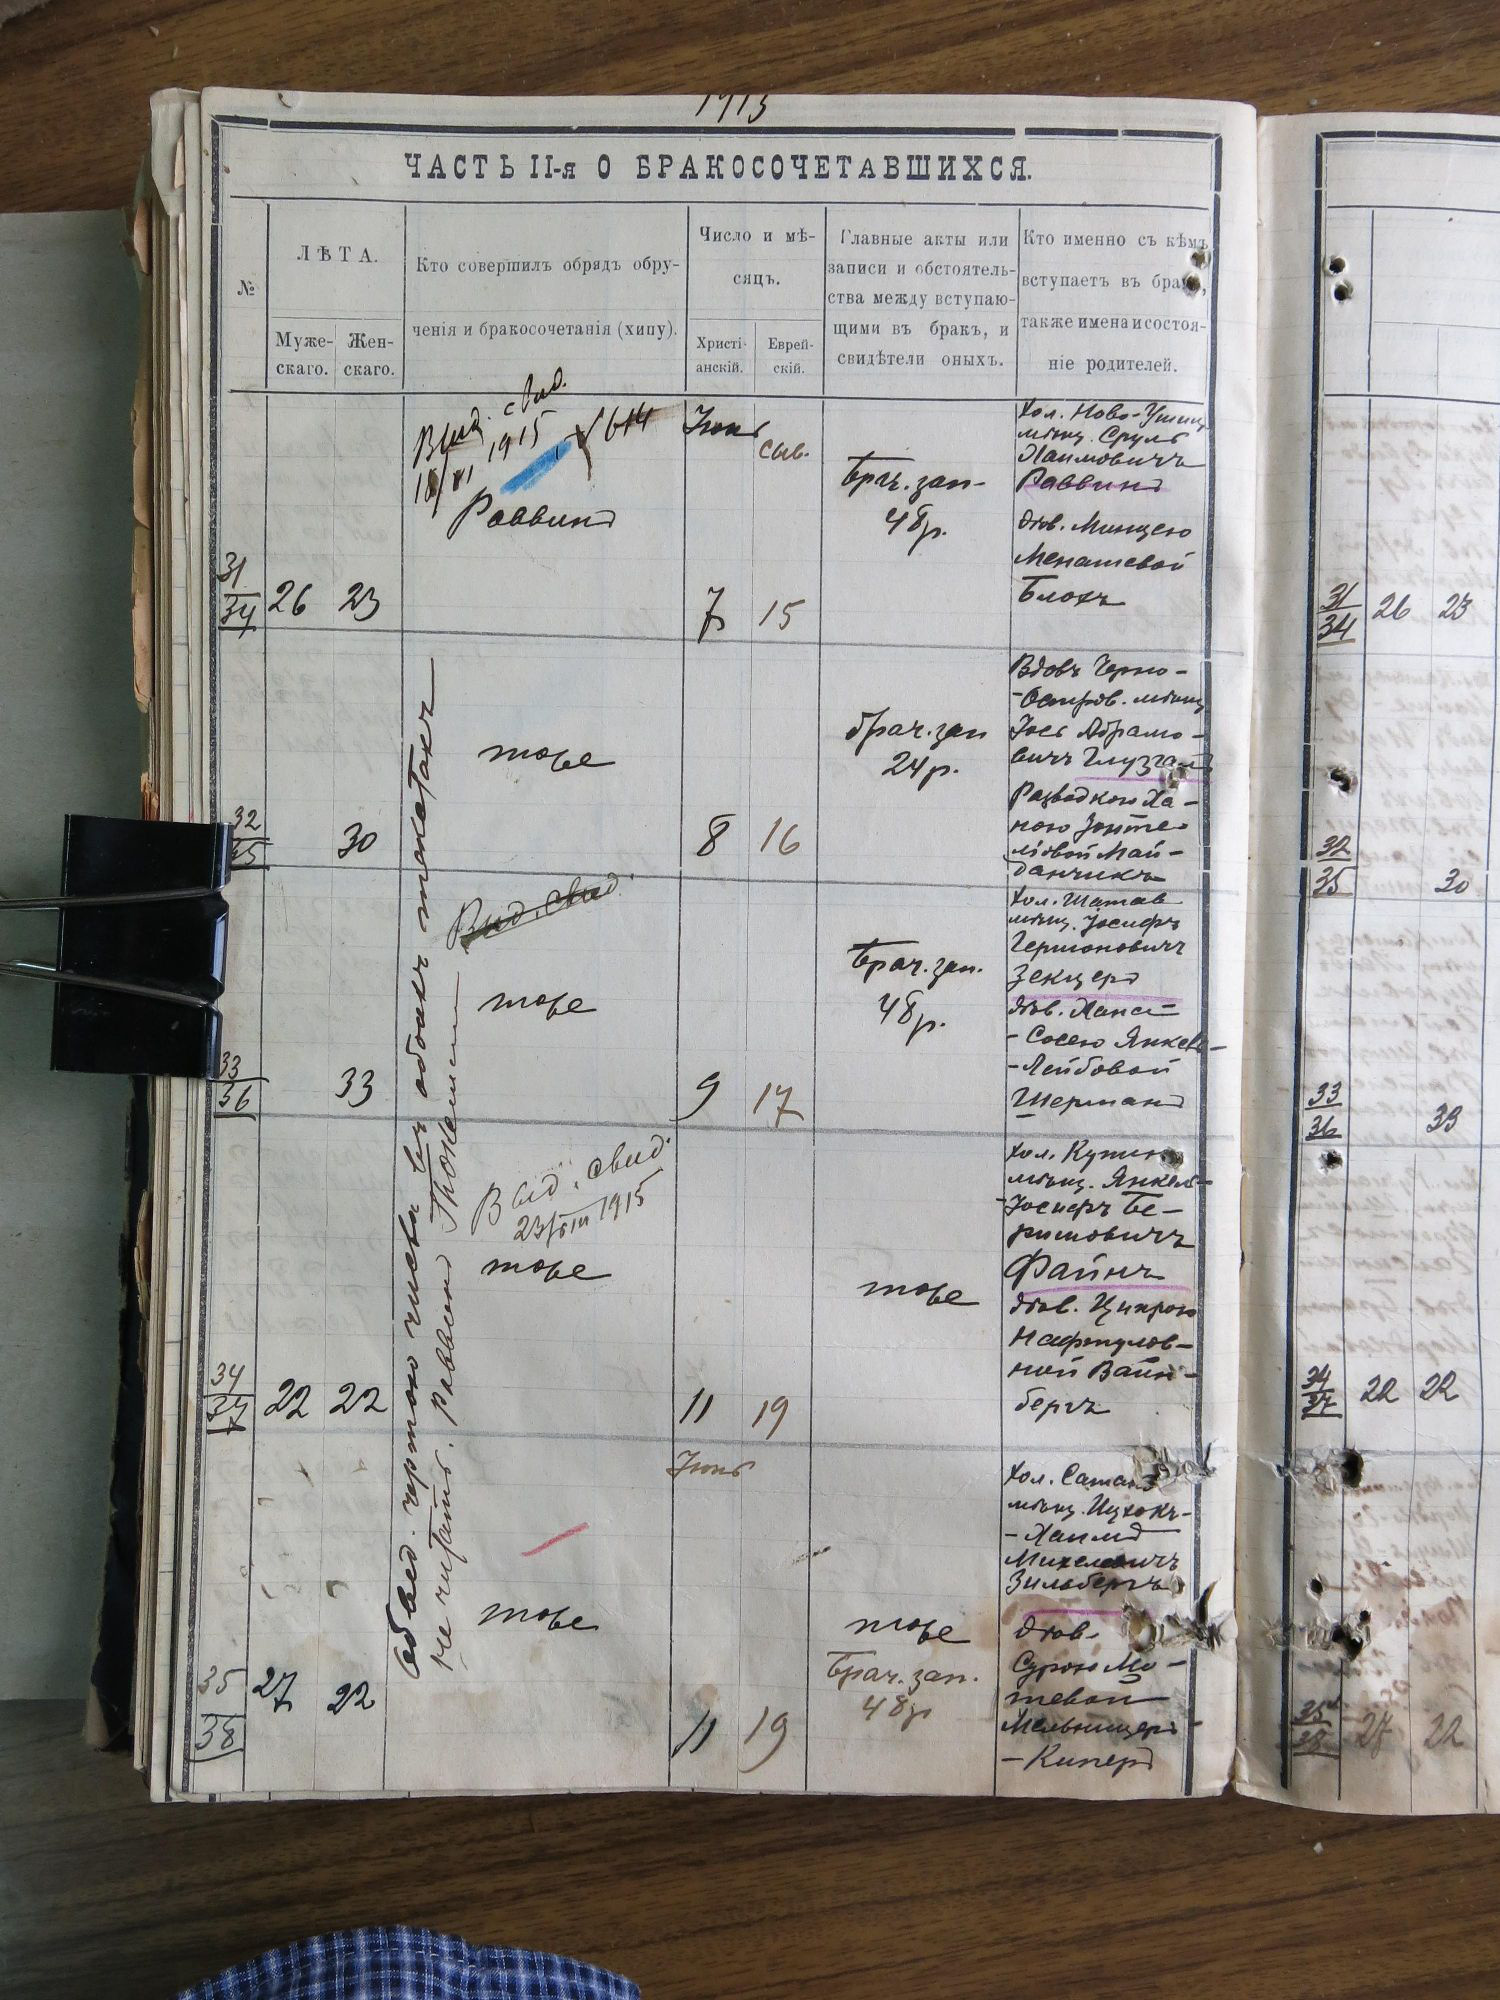 1915
ЧАСТЬ II-я О БРАКОСОЧЕТАВШИХСЯ.
№
ЛѢТА.
Муже-
скаго.
Жен-
скаго.
Кто совершилъ обрядъ обру-
ченія и бракосочетанія (хипу).
Число и мѣ-
сяцъ.
Христі-
анскій.
Еврей-
скій.
Главные акты или
записи и обстоятель-
ства между вступаю-
щими въ бракъ, и
свидѣтели оныхъ.
Кто именно съ кѣмъ
вступаетъ въ бракъ,
также имена и состоя-
ніе родителей.
31
34
26
23
Выд. свид.
1915 614
Раввинъ
Іюнь
сыв.
7
15
Брч. зап-
48р.
Хол. Ново-Ушиц
мѣщ. Сруль
Хаимовичъ
Раввинъ
дѣв. Минцею
Менашевой
Блохъ
32
35
30
тоже
8
16
брач. зап
24р.
Вдовъ Черно-
-Остров. мѣщ
Іось Абрамо-
вичъ Глузгалъ
Разводкою Ха-
ною Зонте-
ліовой Май-
данчикъ
33
36
33
Выд. свид.
тоже
9
17
Брач. зап.
48р.
Хол. Шатав
мѣщ. Іосифъ
Гершоновичъ
Зекцеръ
дѣв. Хана-
-Сосею Янкель-
-Лейбовой
Шерманъ
34
37
22
22
Выд. свид.
23/VIII 1915
тоже
11
19
тоже
Хол. Купин
мѣщ. Янкель-
-Іосифъ Бе-
римовичъ
Файнъ
дѣв. Ципрою
Нафтулов-
ной Вайн-
бергъ
35
38
27
22
тоже
Іюнь
11
19
тоже
Брач. зап.
48р
Хол. Сатан
мѣщ. Ицхокъ-
-Хаимъ
Михелевичъ
Зильбергъ
дѣв-
Сурою Мо-
тевой
Мельницеръ-
-Киперъ
обвед. чертою числа въ обоихъ
не читать. Раввинъ
31
34
26
23
32
35
30
33
36
33
34
37
22
22
35
38
27
22